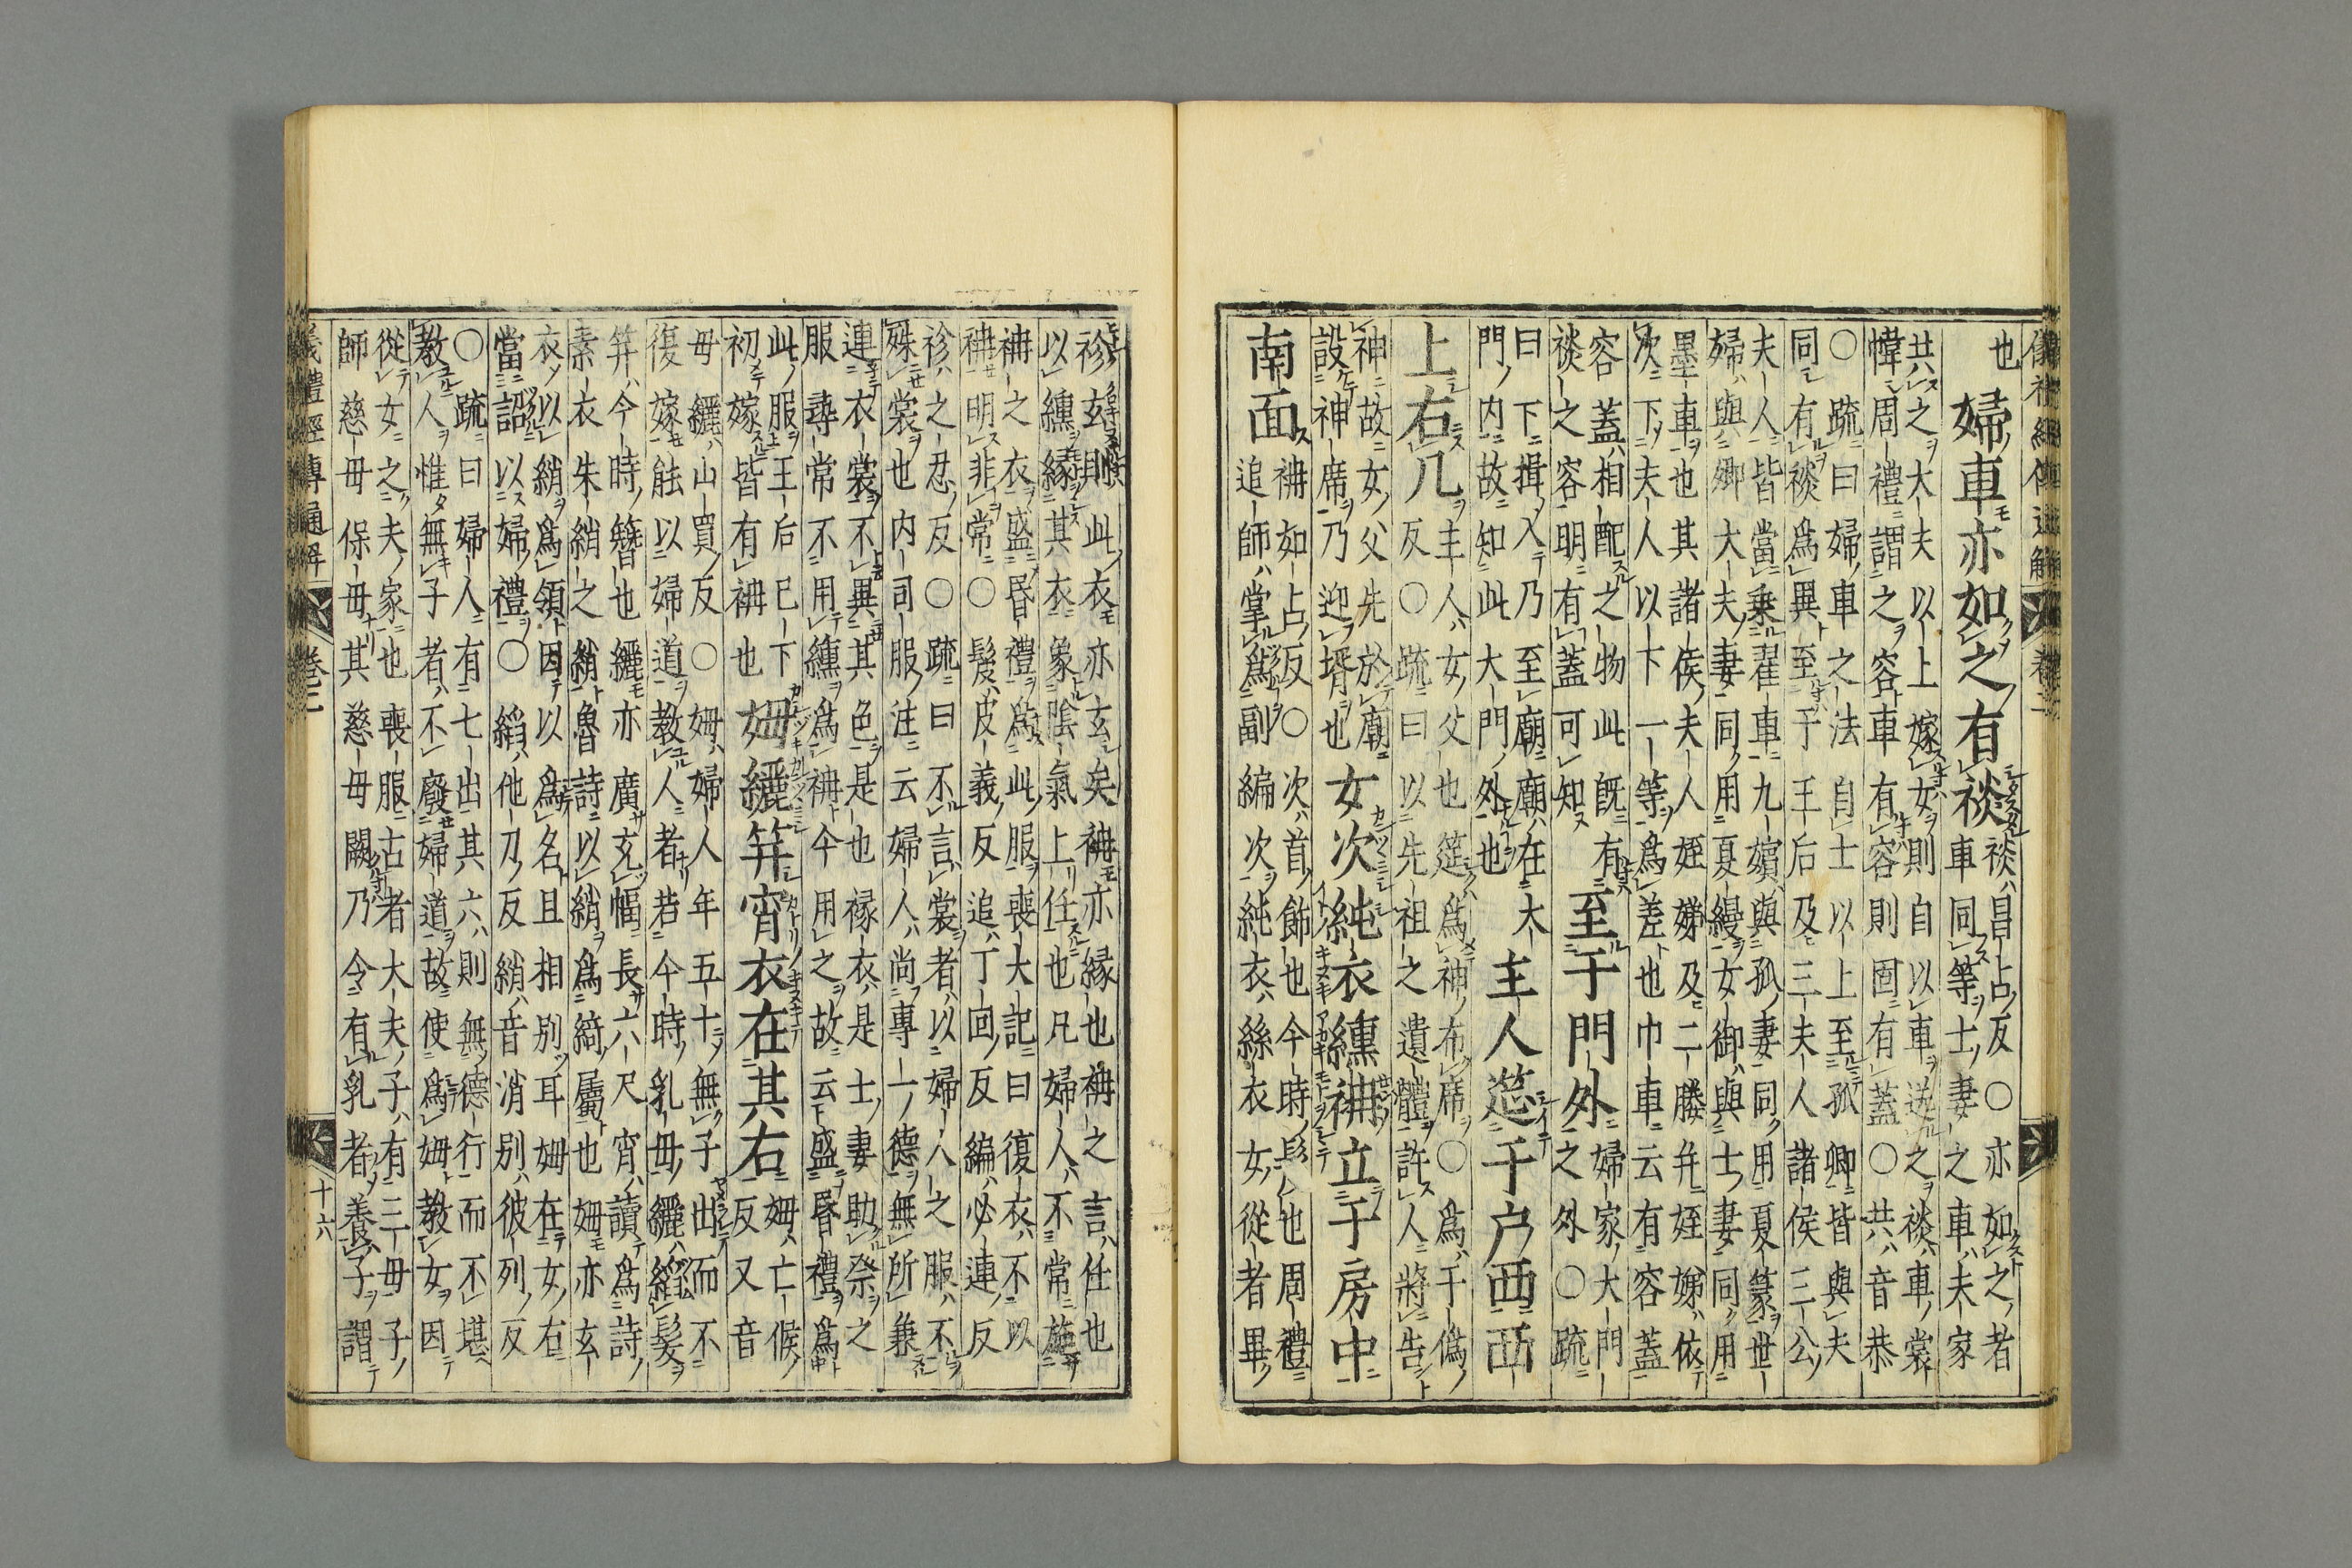 儀禮經傳通解 卷二
也
婦車亦如之有裧
裧昌占反○亦如之者
車同等士妻之車夫家
共之大夫以上嫁女則自以車送之裧車裳
幃周禮謂之容車有容則固有蓋○共音恭
○疏曰婦車之法自士以上至孤卿皆與夫
同有裧爲異至于王后及三夫人諸侯三公
夫人皆當乗翟車九嬪與孤妻同用夏篆世
婦與卿大夫妻同用夏縵女御與士妻同用
墨車也其諸侯夫人姪娣及二媵并姪娣依
次下夫人以下一等爲差也巾車云有容蓋
容蓋相配之物此旣有
裧之容明有蓋可知
至于門外
婦家大門
之外○疏
曰下揖入乃至廟廟在大
門内故知此大門外也
主人筵于户西西
上右几
主人女父也筵爲神布席○爲于僞
反○疏曰以先祖之遺體許人將告
神故女父先於廟
設神席乃迎壻也
女次純衣纁袡立于房中
南面
袡如占反○次首飾也今時髲也周禮
追師掌爲副編次純衣絲衣女從者畢
袗玄則此衣亦玄矣袡亦縁也袡之言任也
以纁縁其衣象陰氣上任也凡婦人不常施
袡之衣盛昏禮爲此服喪大記曰復衣不以
袡明非常○髲皮義反追丁回反編必連反
袗之忍反○疏曰不言裳者以婦人之服不
殊裳也内司服注云婦人尚專一德無所兼
連衣裳不異其色是也褖衣是士妻助祭之
服尋常不用纁爲袡今用之故云盛昏禮爲
此服王后已下
初嫁皆有袡也
姆纚笄宵衣在其右
姆亡候
反又音
毋纚山買反○姆婦人年五十無子出而不
復嫁能以婦道教人者若今時乳毋纚縚髮
笄今時簪也纚亦廣充幅長六尺宵讀爲詩
素衣朱綃之綃魯詩以綃爲綺屬也姆亦玄
衣以綃爲領因以爲名且相别耳姆在女右
當詔以婦禮○縚他刀反綃音消别彼列反
○疏曰婦人有七出其六則無德行而不堪
教人惟無子者不廢婦道故使爲姆教女因
從女之夫家也喪服古者大夫子有三母子
師慈母保母其慈母闕乃令有乳者養子謂
儀禮經傳通解 卷二 十六